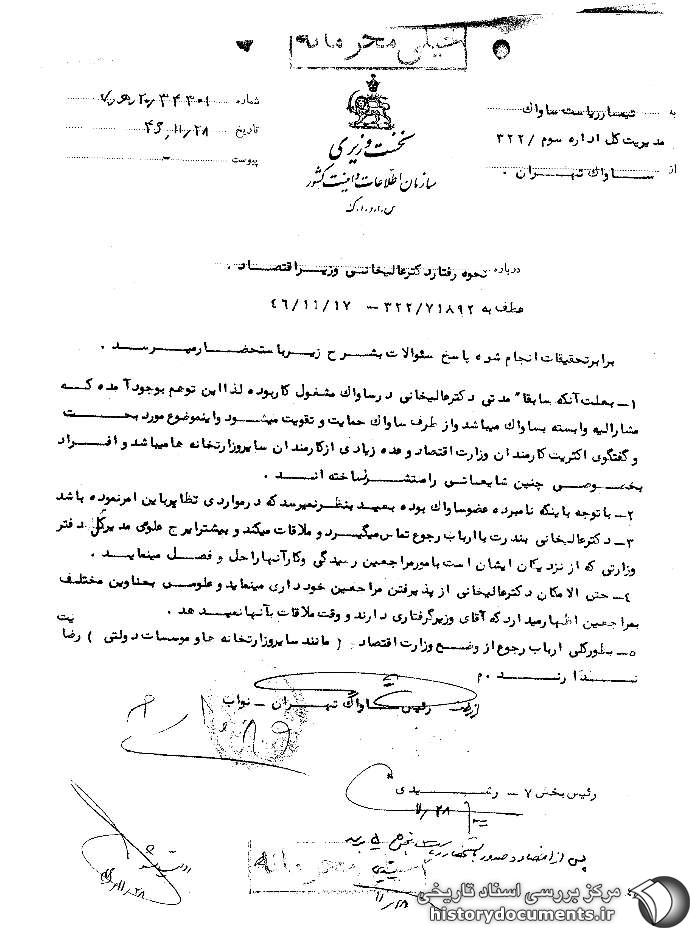 خیلی محرمانه
به تیمسار ریاست ساواک
مدیریت کل اداره سوم /۳۲۲
از ســاواک تهـران .
نخست وزیری
سازمان اطلاعات و امنیت کشور
س.ا.و.ا.ک
شماره ۳۴۳۰۱
تاریخ ۴۶/۱۱/۲۸
پیوست -
درباره نحوه رفتار دکتر عالیخانی وزیر اقتصـاد .
عطف به ۳۲۲/۷۱۸۹۲ – ٤٦/۱۱/۱۷
برابر تحقیقات انجام شده پاسخ سئوالات بشـرح زیر باستحضـار میرسـد .
۱ــ بعلت آنکه سابقا" مدتی دکتر عالیخانی در ساواک مشغول کار بوده لذا این توهم بوجود آمده کـه
مشارالیه وابسته بساواک میباشد و از طرف ساواک حمایت و تقویت میشـود و اینموضوع مورد بحـث
و گفتگوی اکثریت کارمندان وزارت اقتصاد و عده زیادی از کارمندان سایر وزارتخانه ها میباشد و افـراد
بخصوصی چنین شایعاتی را منتشـر ساخته انـد .
۲ــ با توجه باینکه نامبرده عضو ساواک بوده بعیـد بنظر نمیرسد که در مواردی تظاهر باین امر نموده باشد
۳ــ دکتر عالیخانی بندرت با ارباب رجوع تماس میگیـرد و ملاقات میکند و بیشتر ایرج علومی مدیر کل دفتر
وزارتی که از نزدیکان ایشان است بامور مراجعین رسیدگی و کار آنها را حل و فصـل مینمایـد .
٤ــ حتی الامکان دکتر عالیخانی از پذیرفتن مراجعین خودداری مینماید و علومـی بعناوین مختلـف
بمراجعین اظهار میدارد که آقای وزیر گرفتاری دارند و وقت ملاقات بآنها نمیـدهد .
۵ــ بطور کلی ارباب رجوع از وضـع وزارت اقتصاد ( مانند سایر وزارتخانه ها و موسسات دولتی ) رضایت
نـدارنـد . م
رئیس ساواک تهـران ــ نواب
رئیس بخش ۷ ــ رشیـدی
۱۱/۲۸
پس از امضاء و صدور باستحضار ریاست بخش
محرمانه
۱۱/۲۸
مرکز بررسی اسناد تاریخی
historydocuments.ir